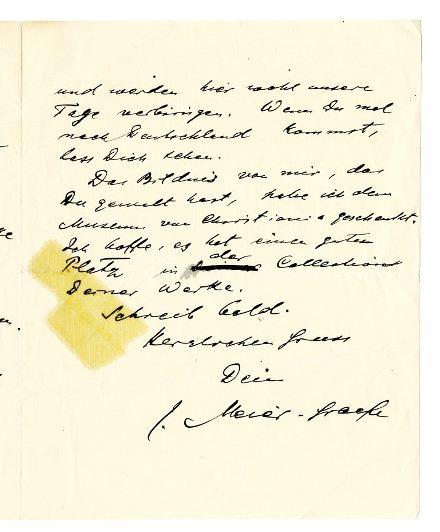 und werden hier wohl unsere
Tage verbringen. Wenn Du mal
nach Deutschland kommst,
lass Dich sehen.
Das Bildnis von mir, das
Du gemalt hast, habe ich dem
Museum von Christiania geschenkt.
Ich hoffe, es hat einen guten
Platz in der Collection
Deiner Werke.
Schreib bald.
Herzlichen Gruss
Dein
J. Meier-Graefe